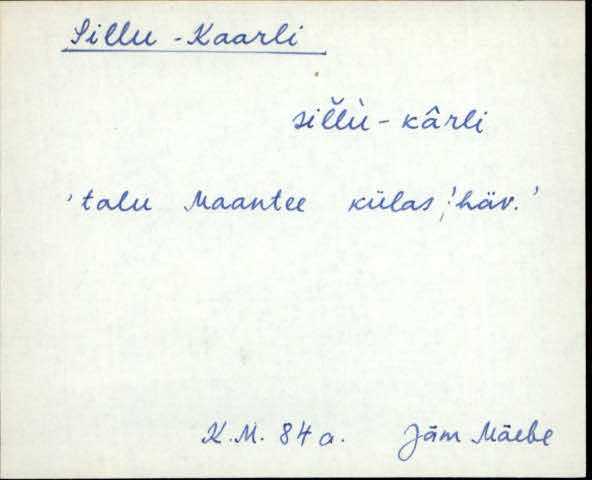 Sillu - Kaarli
sil̆lù - kârli
'talu Maantee külas, 'häv.'
K.M. 84 a. Jäm Mäebe